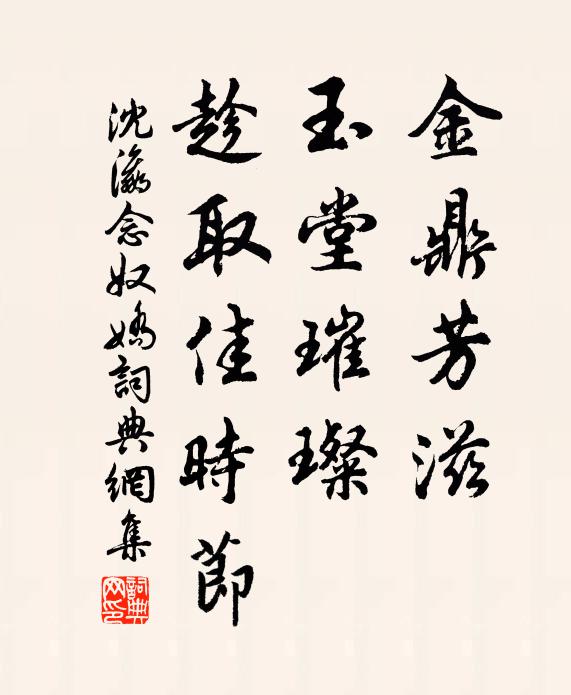 金鼎芳滋
玉堂璀璨
趁取佳時節
沈瀛念奴嬌詞典網集
詞典網印